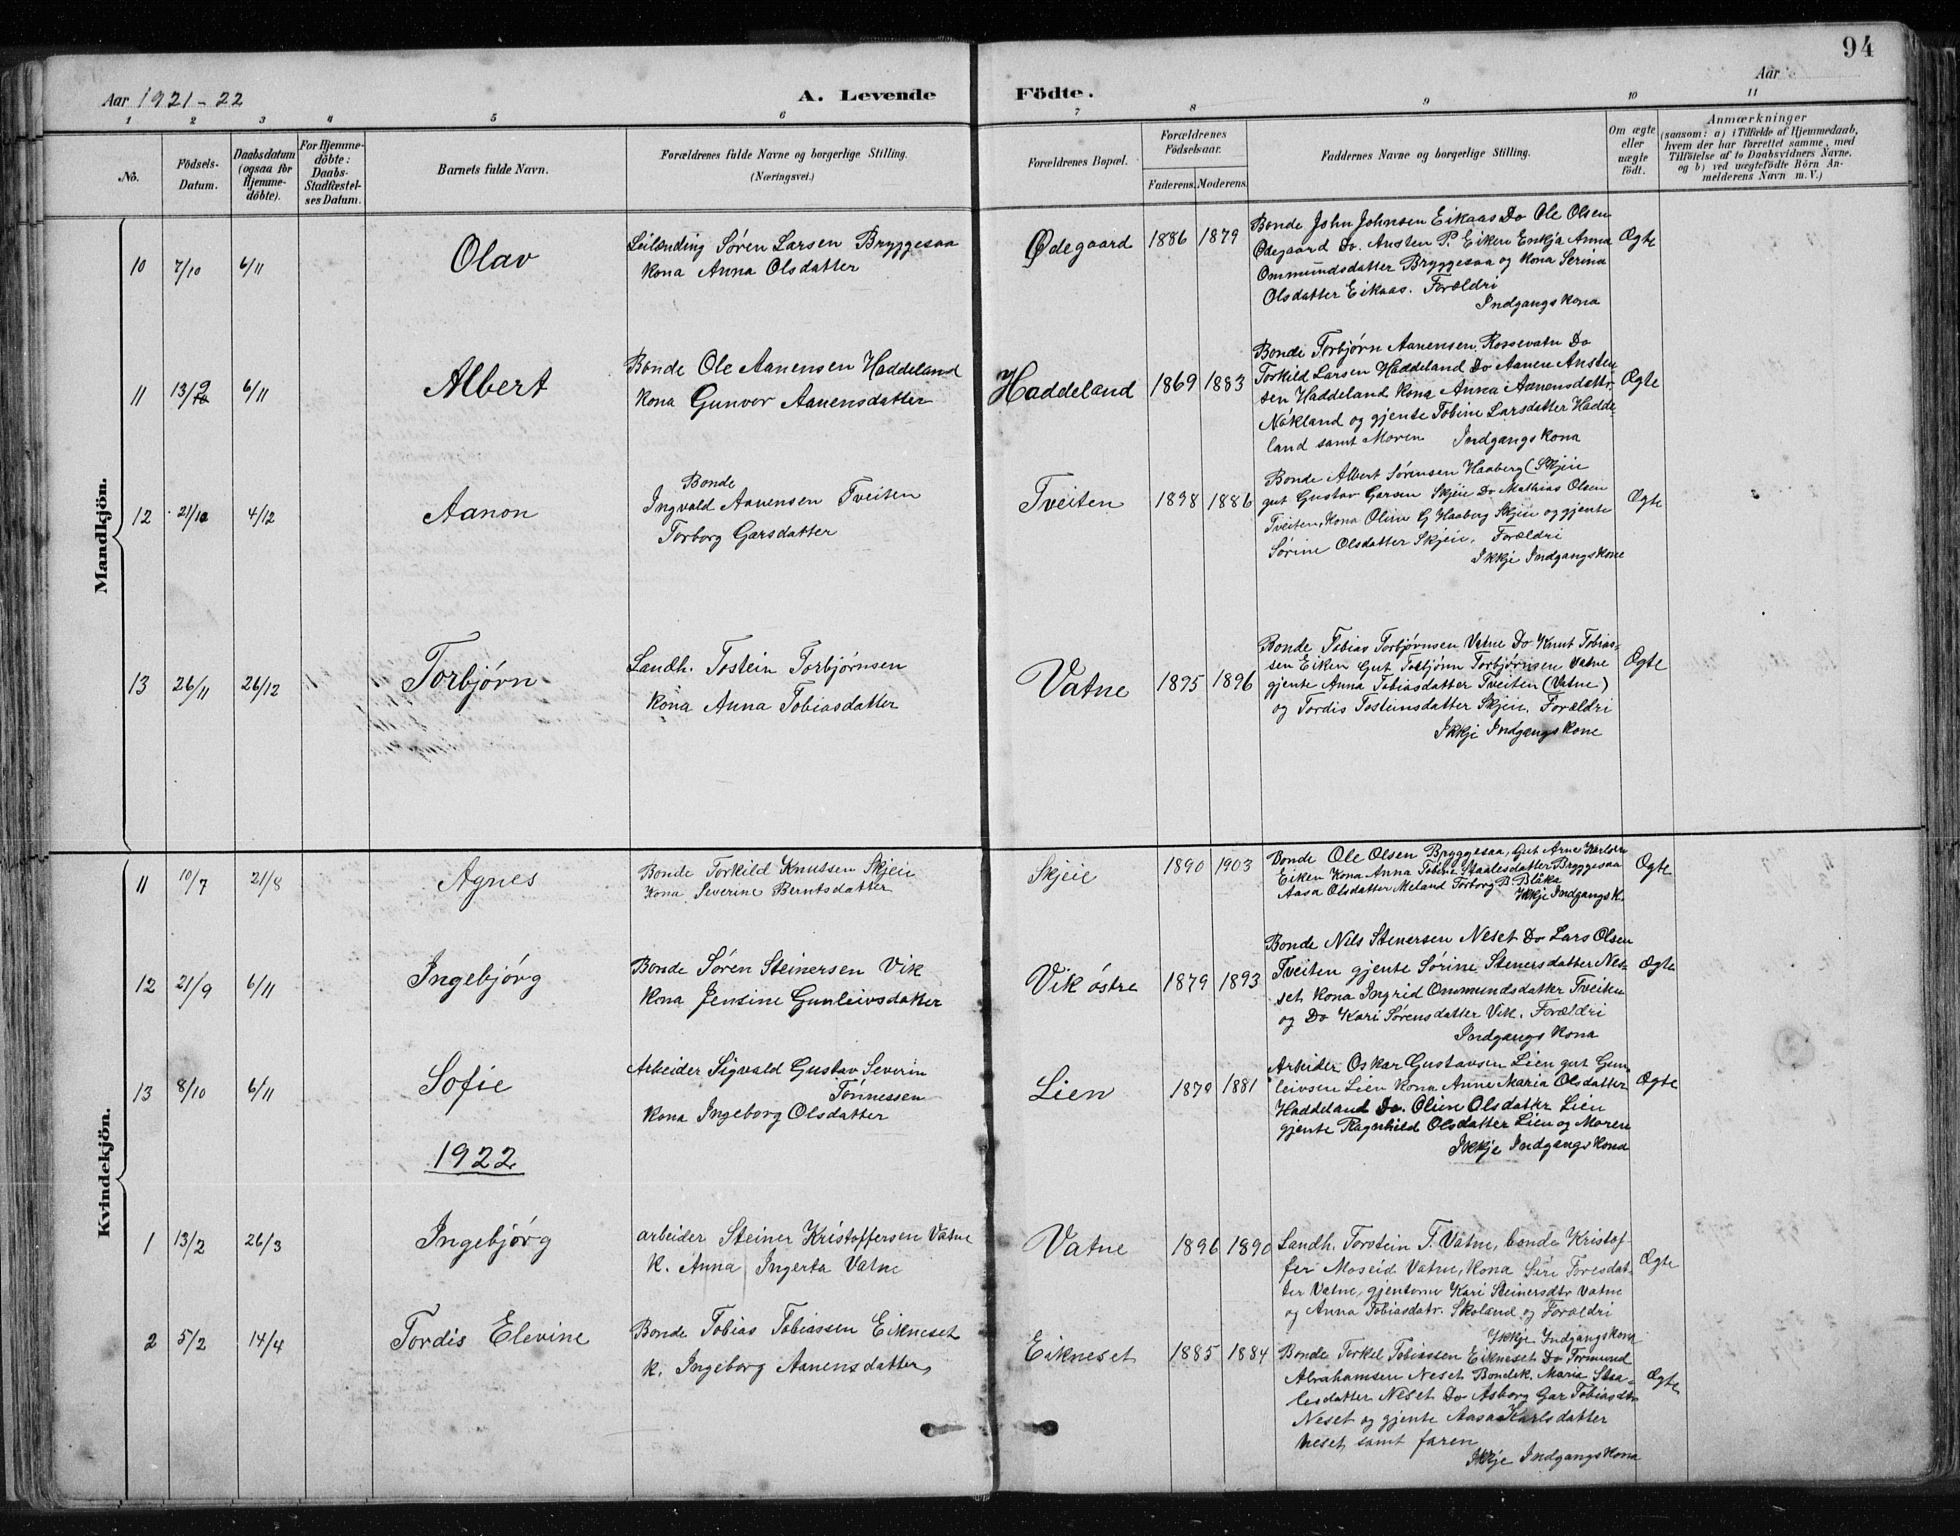 94
Aar 1921-22
A. Levende Födte.
Aar
1 2 3 4 5 6 7 8 9 10 11
No.
Födsels-Datum.
Daabsdatum (ogsaa for Hjemme-döbte).
For Hjemme-döbte: Daabs-Stadfæstel-ses Datum.
Barnets fulde Navn.
Forældrenes fulde Navne og borgerlige Stilling. (Næringsvei.)
Forældrenes Bopæl.
Forældrenes Födselsaar.
Faderens. Moderens.
Faddernes Navne og borgerlige Stilling.
Om ægte eller uægte födt.
Anmærkninger
(saasom: a) i Tilfælde af Hjemmedaab, hvem der har forrettet samme, med Tilföielse af to Daabsvidners Navne, og b) ved uægtefödte Börn An-melderens Navn m.V.)
Mandkjön.
10 7/10 6/11 Olav
Leilending Søren Larsen Bryggesaa
Kona Anna Olsdatter
Ødegaard 1886 1879
Bonde John Johnsen Eikaas Do Ole Olsen
Ødegaard Do. Ansten P. Eiken Enkja Anna
Ommundsdatter Bryggesaa og Kona Serina
Olsdatter Eikaas. Forældri
Indgangskona
Ægte
11 13/9 6/11 Albert
Bonde Ole Aanensen Haddeland
Kona Gunvor Aanensdatter
Haddeland 1869 1883
Bonde Torbjørn Aanensen Rossevatn Do
Torkild Larsen Haddeland Do Aanen Ansten
sen Haddeland Kona Anna Aanensdattr
Nökland og gjente Tobine Larsdatter Hadde-
land samt Moren Indgangskona
Ægte
12 21/10 4/12 Aanon
Bonde
Ingvald Aanensen Tveiten
Torborg Garsdatter
Tveiten 1898 1886
Bonde Albert Sørensen Haaberg (Skjeie
gut Gustav Garsen Skjeie Do Mathias Olsen
Tveiten, Kona Oline G Haaberg Skjeie og gjente
Sørine Olsdatter Skjeie, Forældri
Ikkje Indgangskone
Ægte
13 26/11 26/12 Torbjørn
Landh. Tostein Torbjørnsen
Kona Anna Tobiasdatter
Vatne 1895 1896
Bonde Tobias Torbjørnsen Vatne Do Knut Tobias-
sen Eiken Gut Torbjönn Torbjörnsen Vatne
gjente Anna Tobiasdatter Tveiten (Vatne)
og Tordis Tosteinsdatter Skjeie, Forældri
Ikkje Indgangskone
Ægte
Kvindekjön.
11 10/7 21/8 Agnes
Bonde Torkild Knutsen Skjeie
Kona Severine Berntsdatter
Skjeie 1890 1903
Bonde Ole Olsen Bryggesaa, Gut Arne Karlsen
Eiken Kona Anna Tobine Staalesdatter Bryggesaa
Aasa Olsdatter Meland Torborg B. Blåka
Ikkje Indgangsk.
Ægte
12 21/9 6/11 Ingebjórg
Bonde Sören Steinersen Vik
Kona Jensine Gunleivsdatter
Vik östre 1879 1893
Bonde Nils Stenersen Neset Do Lars Olsen
Tveiten gjente Sorine Stenersdatter Nes-
set Kona Ingrid Ommundsdatter Tveiten
og Do Kari Sørensdatter Vik. Forældri
Indgangskona
Ægte
13 8/10 6/11 Sofie
Arbeider Sigvald Gustav Severin
Tönnessen
Kona Ingeborg Olsdatter
Lien 1879 1881
Arbeider Oskar Gustavsen Lien gut Gun-
leivsen Lien Kona Anne Maria Olsdatter
Haddeland Do. Oline Olsdatter Lien
gjente Ragnhild Olsdatter Lien og Moren
Ikkje Indgangskona
Ægte
1922
1 13/2 26/3 Ingebjörg
arbeider Steiner Kristoffersen Vatne
K. Anna Ingerta Vatne
Vatne 1896 1890
Landh. Torstein T. Vatne, bonde Kristof-
fer Moseid Vatne, Kona Siri Toresdat-
ter Vatne, gjenterne Kari Steinersdtr Vatne
og Anna Tobiasdatr. Skoland og Forældri
Ikkje Indgangskona
Ægte
2 5/2 14/4 Tordis Elevine
Bonde Tobias Tobiassen Eikneset
K. Ingeborg Aanensdatter,
Eikneset 1885 1884
Bonde Terkel Tobiassen Eikneset Do Tormund
Abrahamsen Neset Bondek. Maria Staa-
lesdatter Neset Do Asborg Gar Tobiasdtr
Neset og gjente Aasa Karlsdatter
Neset samt faren
Ikkje Indgangskona
Ægte